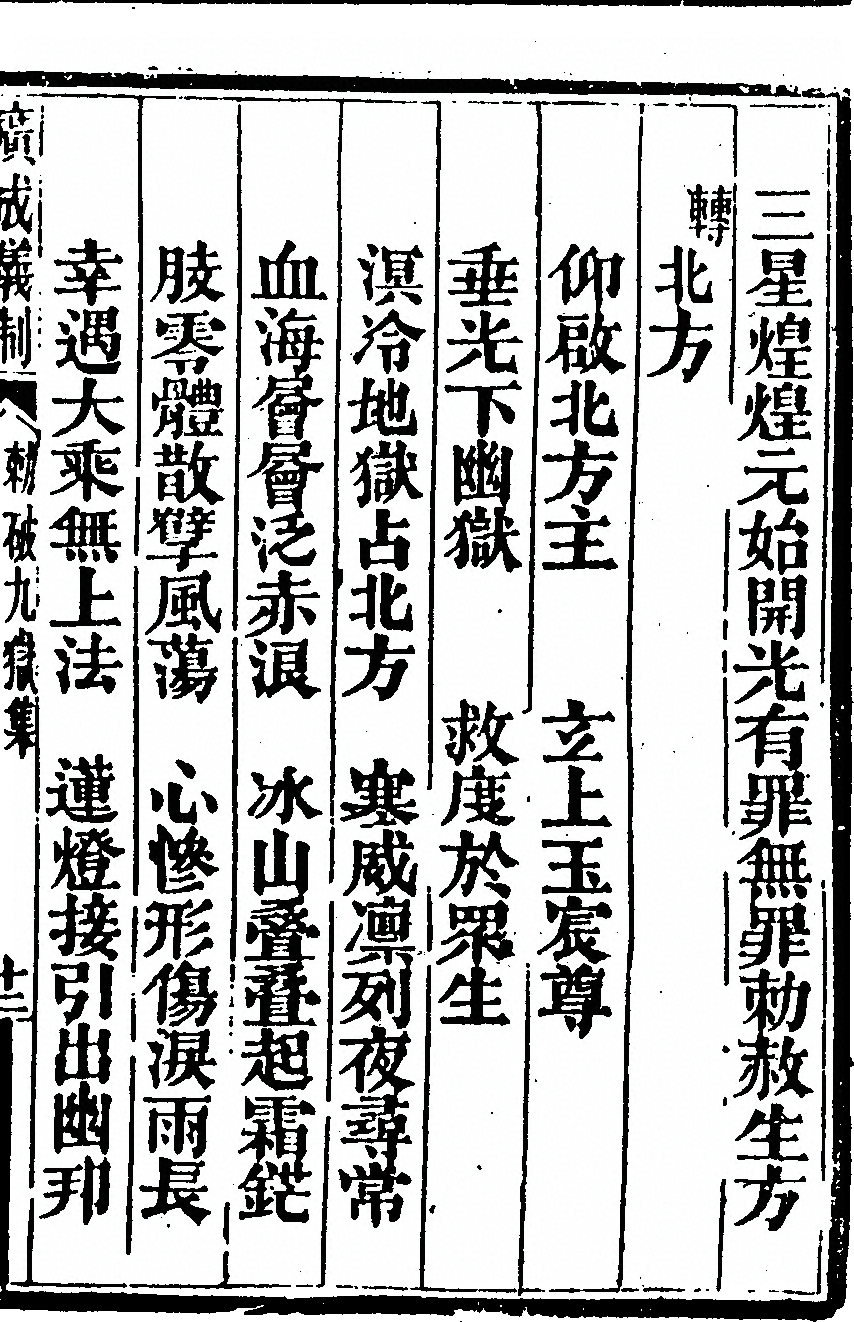 三星煌煌元始開光有罪無罪勅赦生方
轉北方
仰啟北方主　玄上玉宸尊
垂光下幽獄　救度於眾生
溟冷地獄占北方　寒威凛列夜尋常
血海層層泛赤浪　冰山叠叠起霜鋩
肢零體散孽風蕩　心慘形傷淚雨長
幸遇大乘無上法　蓮燈接引出幽邦
廣成儀制　勅破九獄集　十二